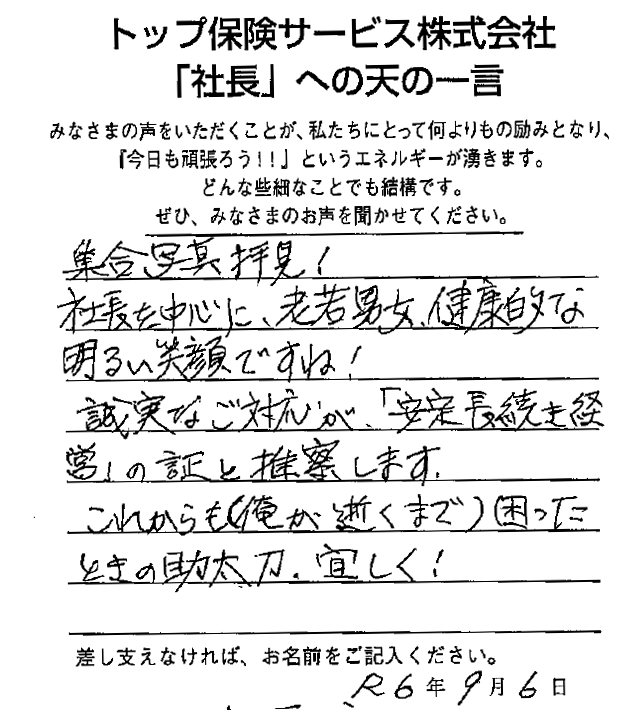 トップ保険サービス株式会社
「社長」への天の一言
みなさまの声をいただくことが、私たちにとって何よりもの励みとなり、
『今日も頑張ろう!!』というエネルギーが湧きます。
どんな些細なことでも結構です。
ぜひ、みなさまのお声を聞かせてください。
集合写真拝見!
社長を中心に、老若男女、健康的な
明るい笑顔ですね!
誠実なご対応が、「安定長続き経
営」の証と推察します。
これからも(俺が逝くまで)困った
ときの助太刀、宜しく!
差し支えなければ、お名前をご記入ください。
R6年9月6日